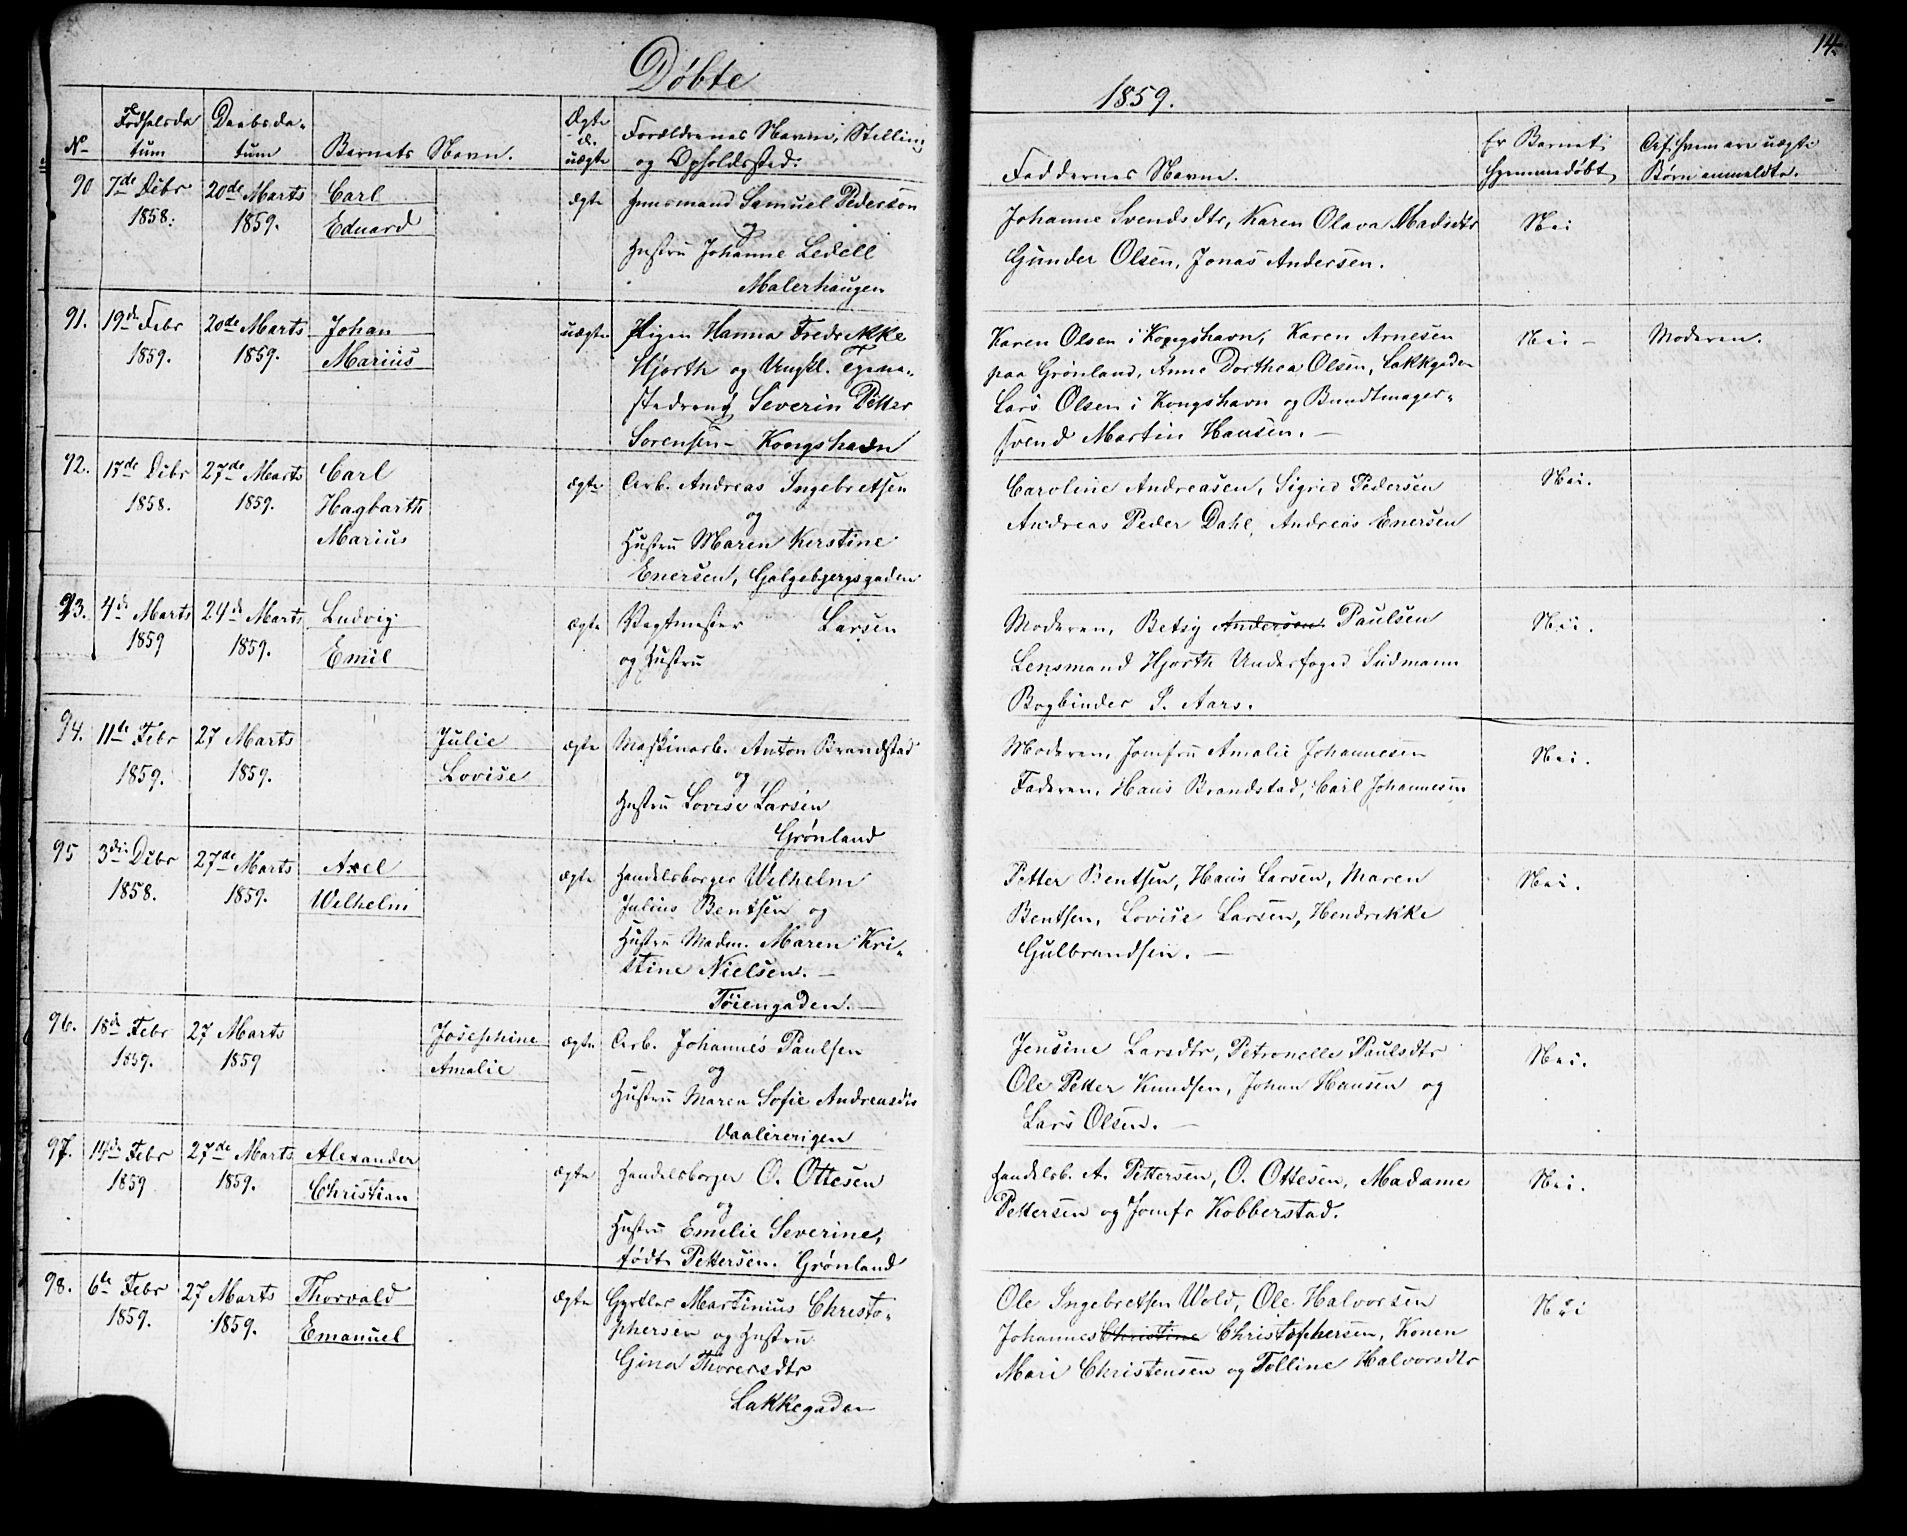 Døbte
1859.
14.
No
Fødselsdatum
Daabsdatum
Barnets Navn.
Ægte el. uægte
Forældrenes Navne, Stilling og Opholdssted.
Faddernes Navne.
Er Barnet hjemmedøbt
Af hvem ere uægte Børn anmeldte.
90 7de Dcbr 20de Marts Carl ægte Huusmand Samuel Pedersen
1858. 1859. Eduard og
Hustru Johanne Ledell
Malerhaugen
Johanne Svendsdtr, Karen Olava Madsdtr Nei
Gunder Olsen, Jonas Andersen.
91. 19de Febr 20de Marts Johan uægte Pigen Hanna Fredrikke
1859. 1859. Marius Hjorth og Ungkl. Tjene-
stedreng Severin Petter
Sørensen - Kongshavn
Karen Olsen i Kongshavn, Karen Arnesen Nei - Moderen.
paa Grønland, Anne Dorthea Olsen, Lakkgaden
Lars Olsen i Kongshavn og Bundtmager-
svend Martin Hansen. -
92. 17de Dcbr 27de Marts Carl ægte Arb. Andreas Ingebretsen
1858. 1859. Hagbarth og
Marius Hustru Maren Kerstine
Enersen, Galgebjergsgaden
Caroline Andreasen, Sigrid Pedersen Nei.
Andreas Peder Dahl, Andreas Enersen
93. 4de Marts 24de Marts Ludvig ægte Vagtmester Larsen
1859 1859. Emil og Hustru
Moderen, Betsy Andersen Paulsen Nei.
Lensmand Hjorth Underfoged Sudmann
Bogbinder P. Aars.
94. 11te Febr 27 Marts Julie ægte Maskinarb. Anton Brandstad
1859. 1859. Lovise og
Hustru Lovise Larsen
Grønland
Moderen, Jomfru Amalie Johannesen Nei.
Faderen, Hans Brandstad, Carl Johannesen
95 3die Dcbr 27de Marts Axel ægte Handelsborger Wilhelm
1858. 1859. Wilhelm Julius Bentsen og
Hustru Madm. Maren Kri-
stine Nielsen. -
Tøiengaden.
Petter Bentsen, Hans Larsen, Maren Nei.
Bentsen, Lovise Larsen, Hendrikke
Gulbrandsen. -
96. 18de Febr 27 Marts Josephine ægte Arb. Johannes Paulsen
1859. 1859 Amalie og
Hustru Maren Sofie Andreasdtr
Vaalerengen
Jensine Larsdtr, Petronelle Paulsdtr Nei.
Ole Petter Knudsen, Johan Hansen og
Lars Olsen. -
97. 14de Febr 27de Marts Alexander ægte Handelsborger O. Ottesen
1859 1859. Christian og
Hustru Emelie Severine,
født Pettersen. Grønland
Handelsb. A. Pettersen, O. Ottesen, Madame Nei.
Pettersen og Jomfr Kobberstad.
98. 6te Febr 27 Marts Thorvald ægte Gjørtler Martinius Christo-
1859. 1859. Emanuel phersen og Hustru
Gina Thorersdtr
Lakkegaden
Ole Ingebretsen Wold, Ole Halvorsen Nei
Johannes Christine Christophersen, Konen
Mari Christensen og Tolline Halvorsdtr